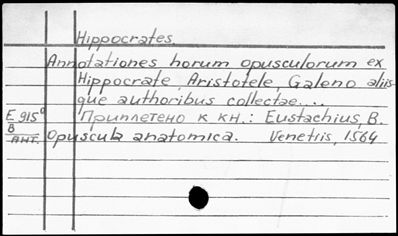 Hippocrates
Annotationes horum opusculorum ex
Hippocrate, Aristotele, Galeno aliis-
que authoribus collectae....
E 915a Приплетено к кн.: Eustachius, B.
B
АНТ. Opuscula anatomica. Venetiis, 1564